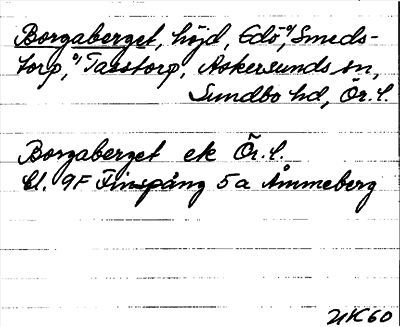 Borgaberget, höjd, Edö-o/Smeds-
torp, o/Tasstorp, Askersunds sn,
Sundbo hd, Ör. l.
Borgaberget ek Ör. l.
bl. 9F Finspång 5a Åmmeberg
UK60